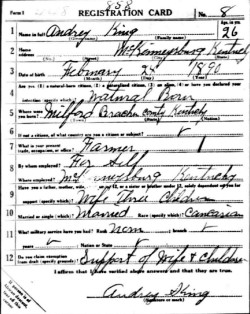 Form 1
858
REGISTRATION CARD No. 8
1 Name in full Andrey King Age, in yrs. 26
(Given name) (Family name)
2 Home address McKinneysburg Kentucky
3 Date of birth February 24 1890
(Month) (Day) (Year)
4 Are you (1) a natural-born citizen, (2) a naturalized citizen, (3) an alien, (4) or have you declared your
intention (specify which)? Natural Born
5 Where were you born? Milford Bracken County Kentucky
6 If not a citizen, of what country are you a citizen or subject?
7 What is your present trade, occupation, or office? Farmer
8 By whom employed? For Self
Where employed? Kentucky
9 Have you a father, mother, wife, child under 12, or a sister or brother under 12, solely dependent on you for
support (specify which)? Wife three Children
10 Married or single (which)? Married Race (specify which)? Caucasian
11 What military service have you had? Rank None branch
years Nation or State
12 Do you claim exemption from draft (specify grounds)? Support of Wife & Children
I affirm that I have verified above answers and that they are true.
Andrey King
(Signature or mark)